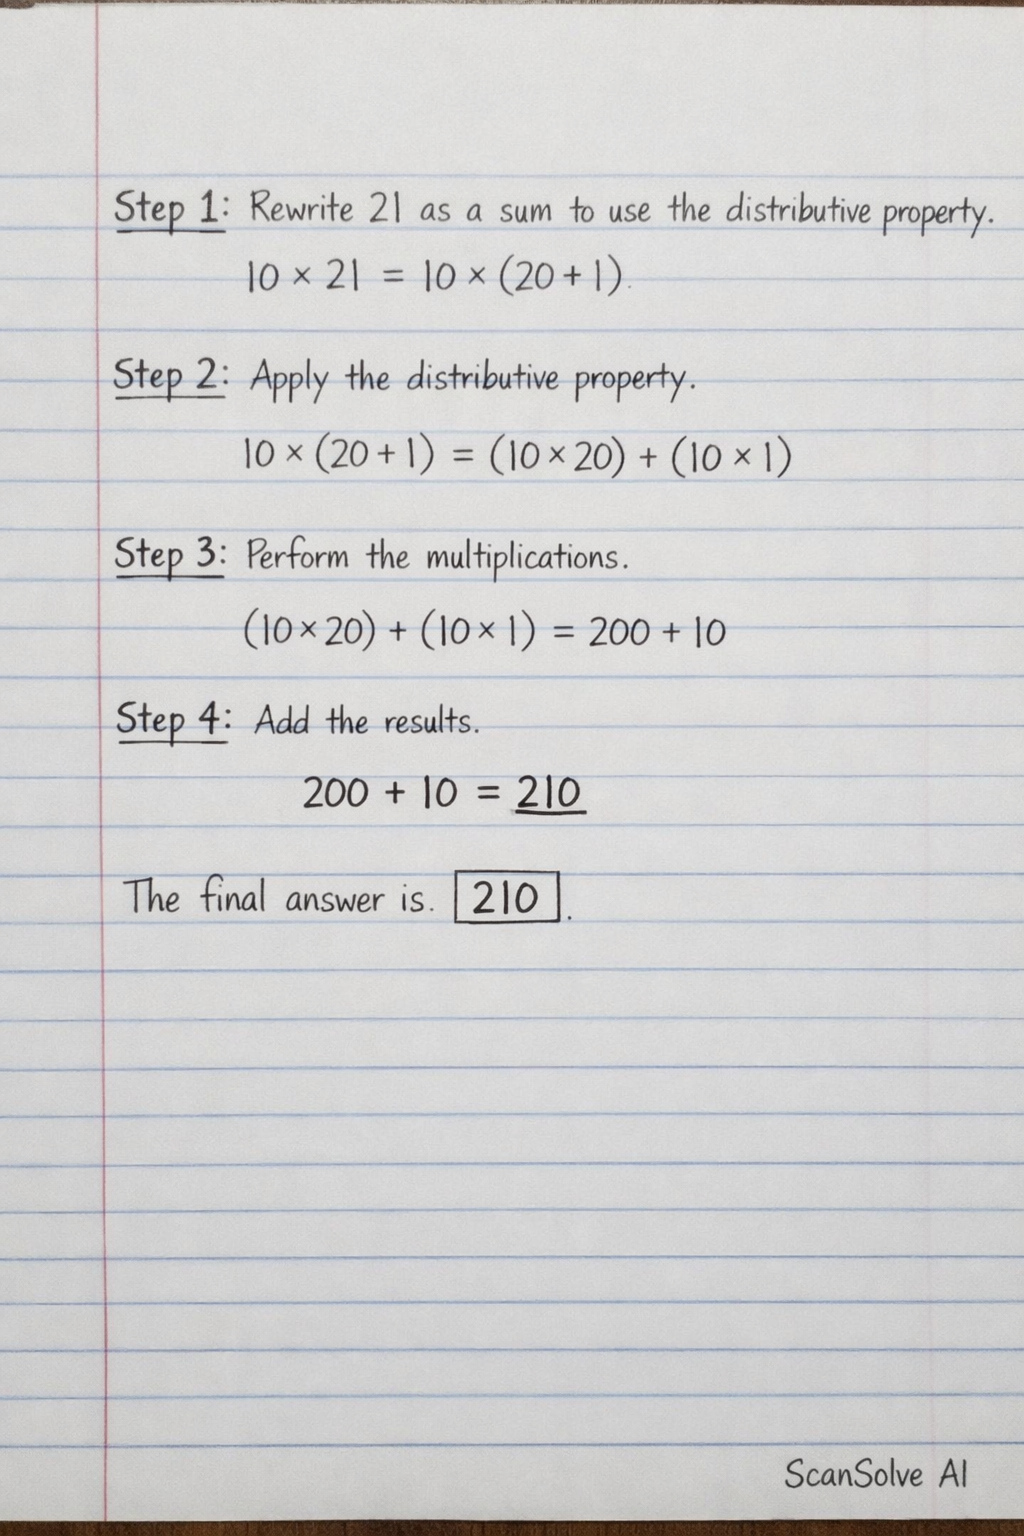 Step 1: Rewrite 21 as a sum to use the distributive property.
10 × 21 = 10 × (20 + 1).
Step 2: Apply the distributive property.
10 × (20 + 1) = (10 × 20) + (10 × 1)
Step 3: Perform the multiplications.
(10 × 20) + (10 × 1) = 200 + 10
Step 4: Add the results.
200 + 10 = 210
The final answer is. 210.
ScanSolve AI